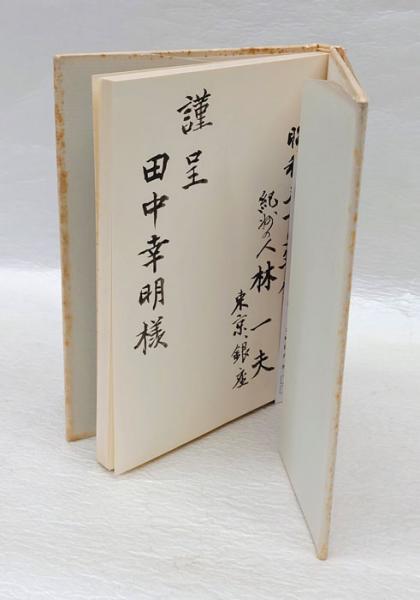 昭和
紀州の人 林一夫
東京、銀座
謹呈
田中幸明様